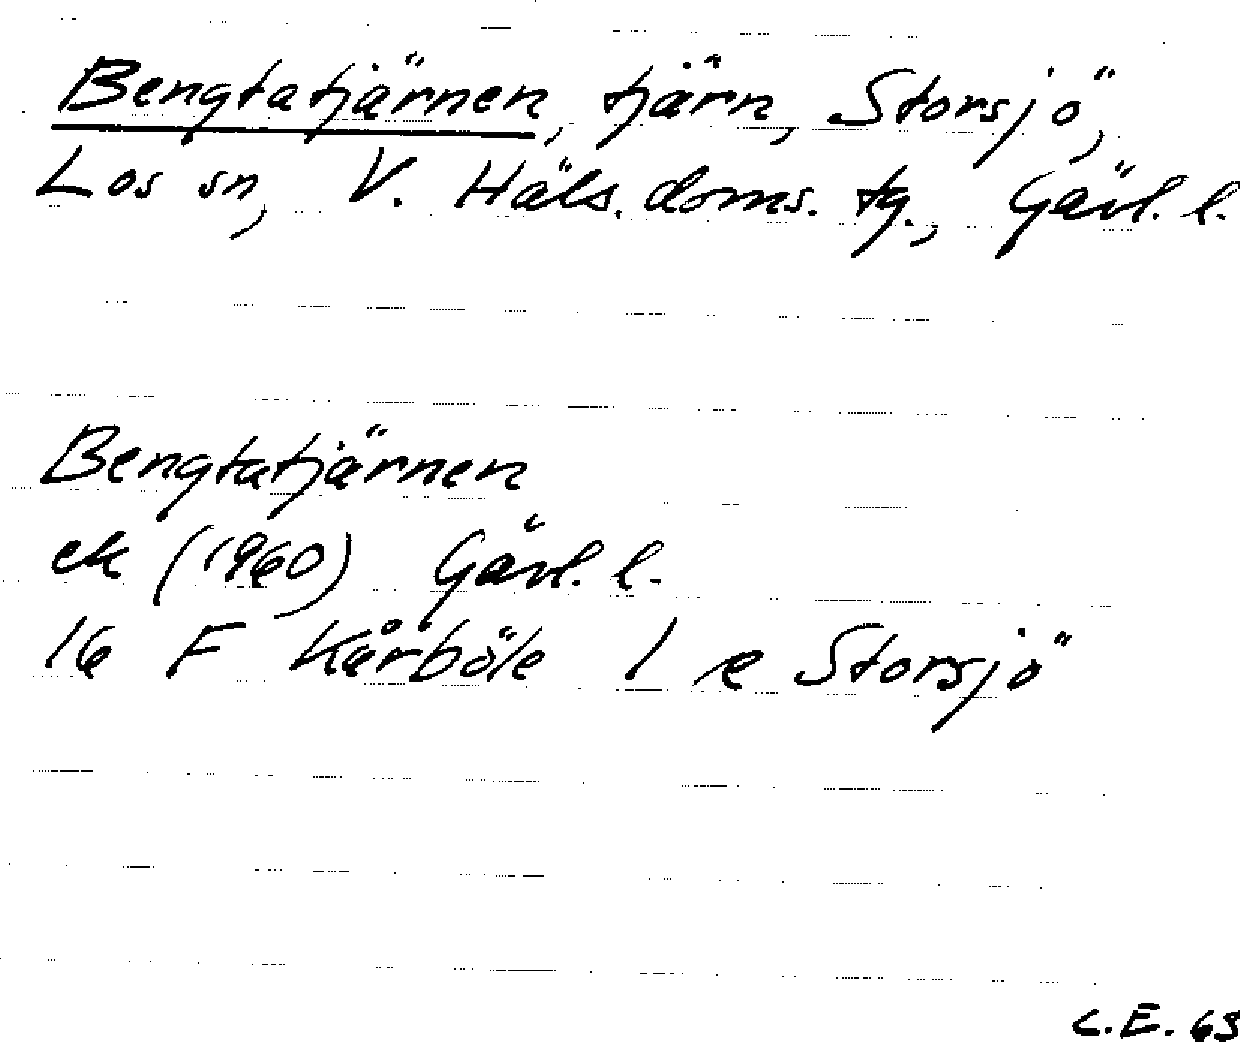 Bengtatjärnen, tjärn, Storsjö,
Los sn, V. Häls. doms. tg., Gävl. l.
Bengtatjärnen
ek (1960) Gävl. l.
16 F Kårböle 1 e Storsjö
C.E. 63